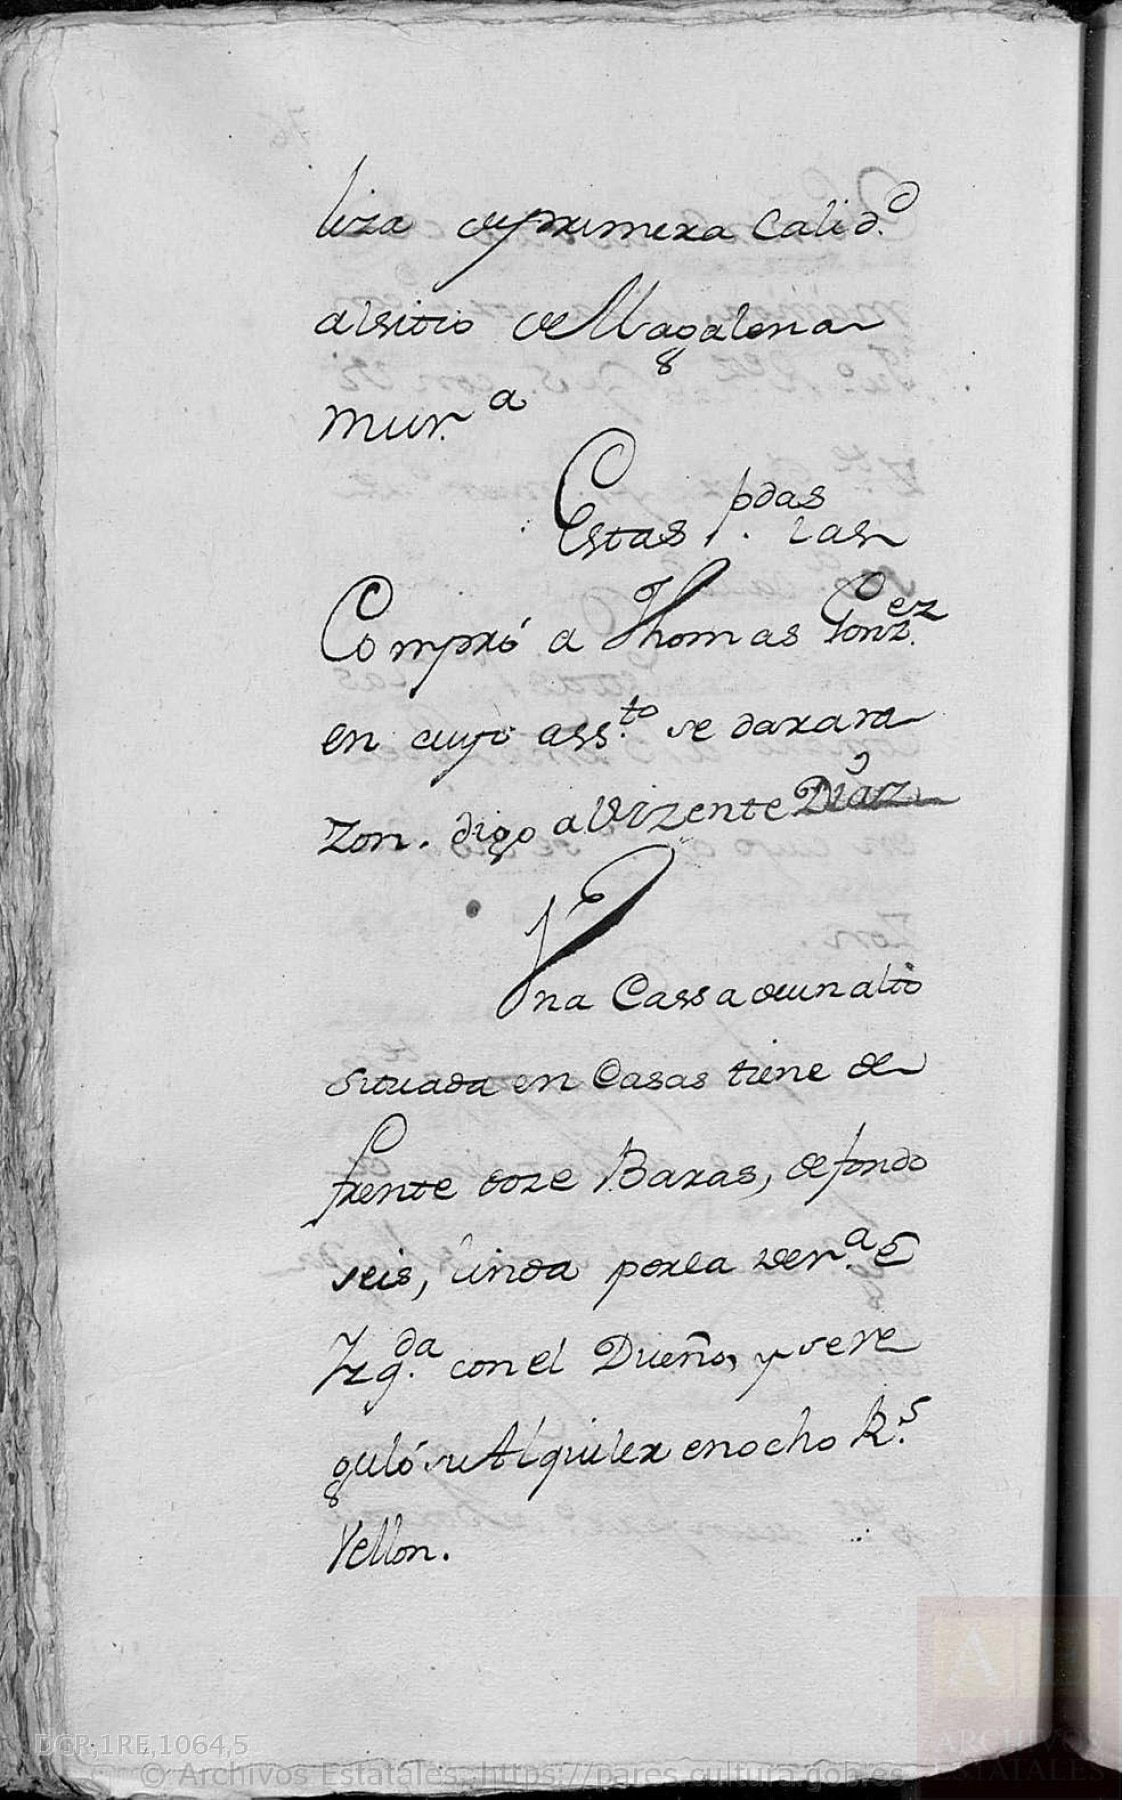 liza de primera Calid.d
al sitio de Magalona
mur.a
Estas p.das las
Compró a Thomas Gonz.ez
en cuyo ass.to se dara ra
zon. digo a Vizente Diaz
Una Cassa de un alto
situada en Casas tiene de
frente doze Baras, de fondo
seis, linda por la der.a é
Yzq.da con el Dueño, y se re
guló su Alquiler en ocho R.s
Vellon.
DGR,1RE,1064,5
© Archivos Estatales, https://pares.cultura.gob.es
ARCHIVOS
ESTATALES